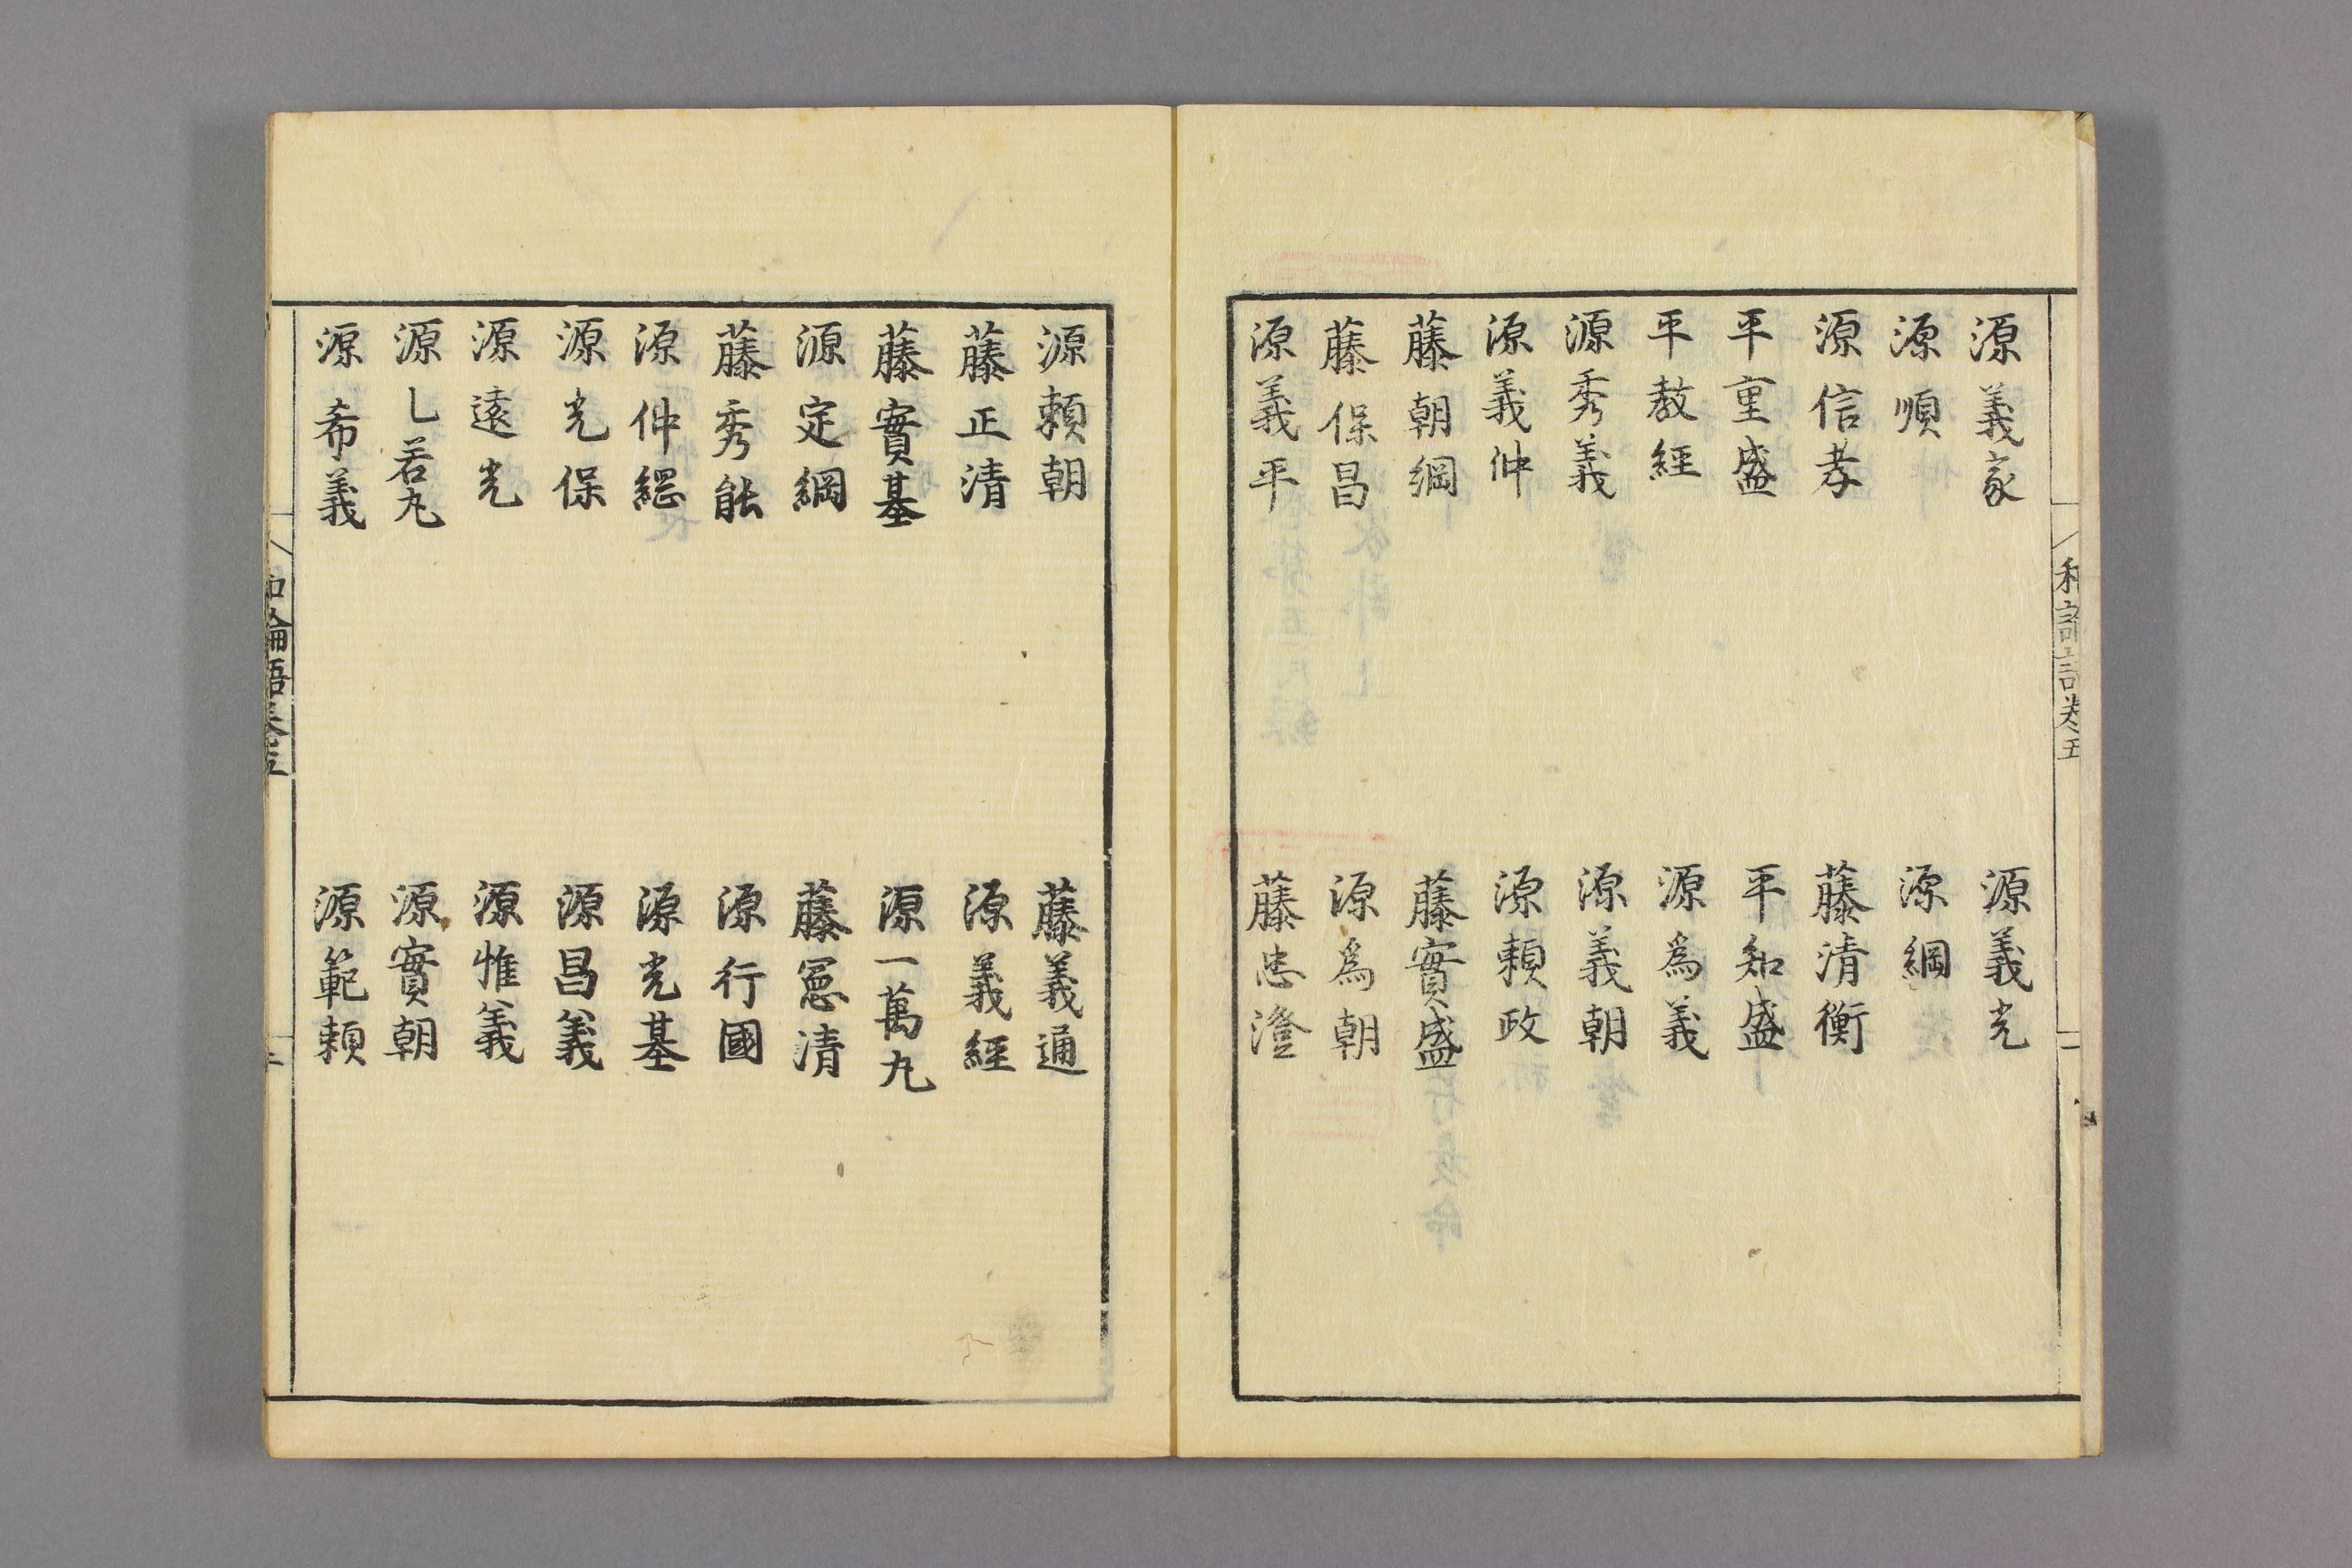 和論語卷五
二
源義家
源義光
源順
源綱
源信孝
藤清衡
平重盛
平知盛
平教經
源爲義
源秀義
源義朝
源義仲
源頼政
藤朝綱
藤實盛
藤保昌
源爲朝
源義平
藤忠澄
源頼朝
藤義通
藤正清
源義經
藤實基
源一萬丸
源定綱
藤寃清
藤秀能
源行國
源仲綱
源光基
源光保
源昌義
源遠光
源惟義
源乚若丸
源實朝
源希義
源範頼
和論語卷五